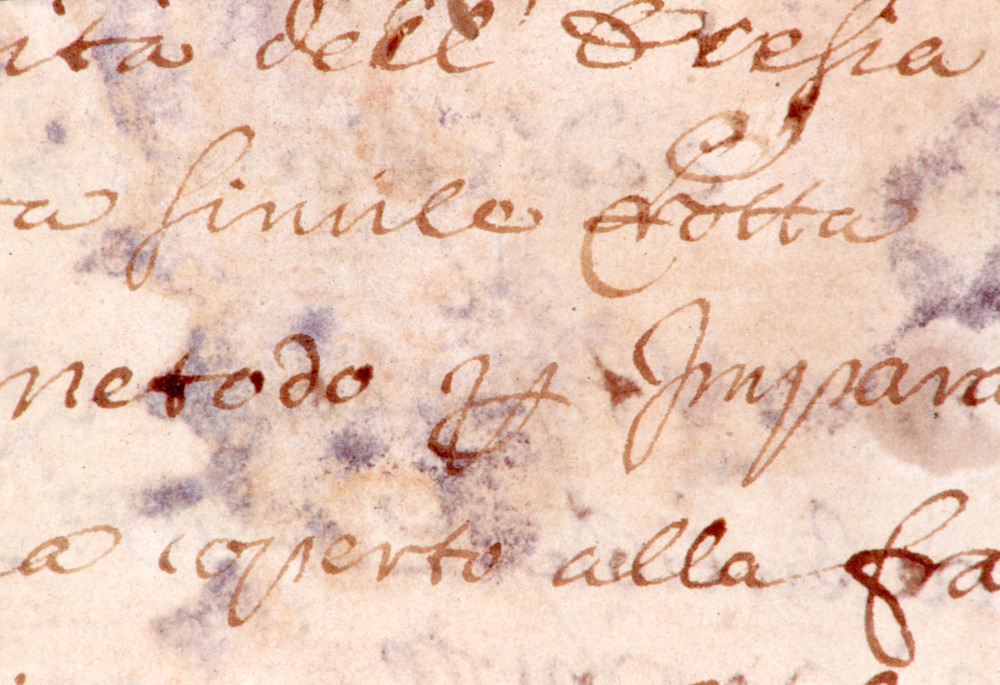 ita dell' Eresia
ta simile Lotta
metodo p Impara
a coperto alla fra